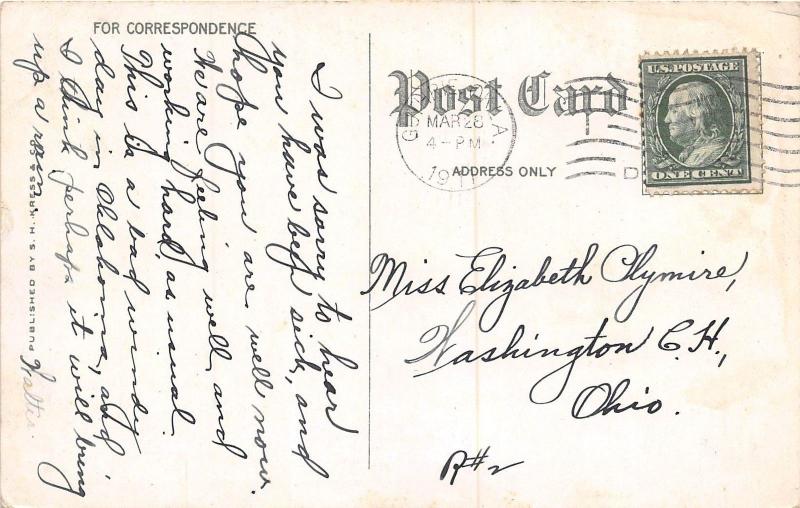 FOR CORRESPONDENCE
I was sorry to hear
you have been sick, and
hope you are well now.
We are feeling well and
working hard, as usual.
This is a bad windy
day in Oklahoma, and
I think perhaps it will bring
up a rain.
Walter.
PUBLISHED BY S. H. KRESS & CO.
Post Card
ADDRESS ONLY
MAR 28
4-PM
1911
U.S. POSTAGE
ONE CENT
Miss Elizabeth Plymire,
Washington C.H.,
Ohio.
R#2